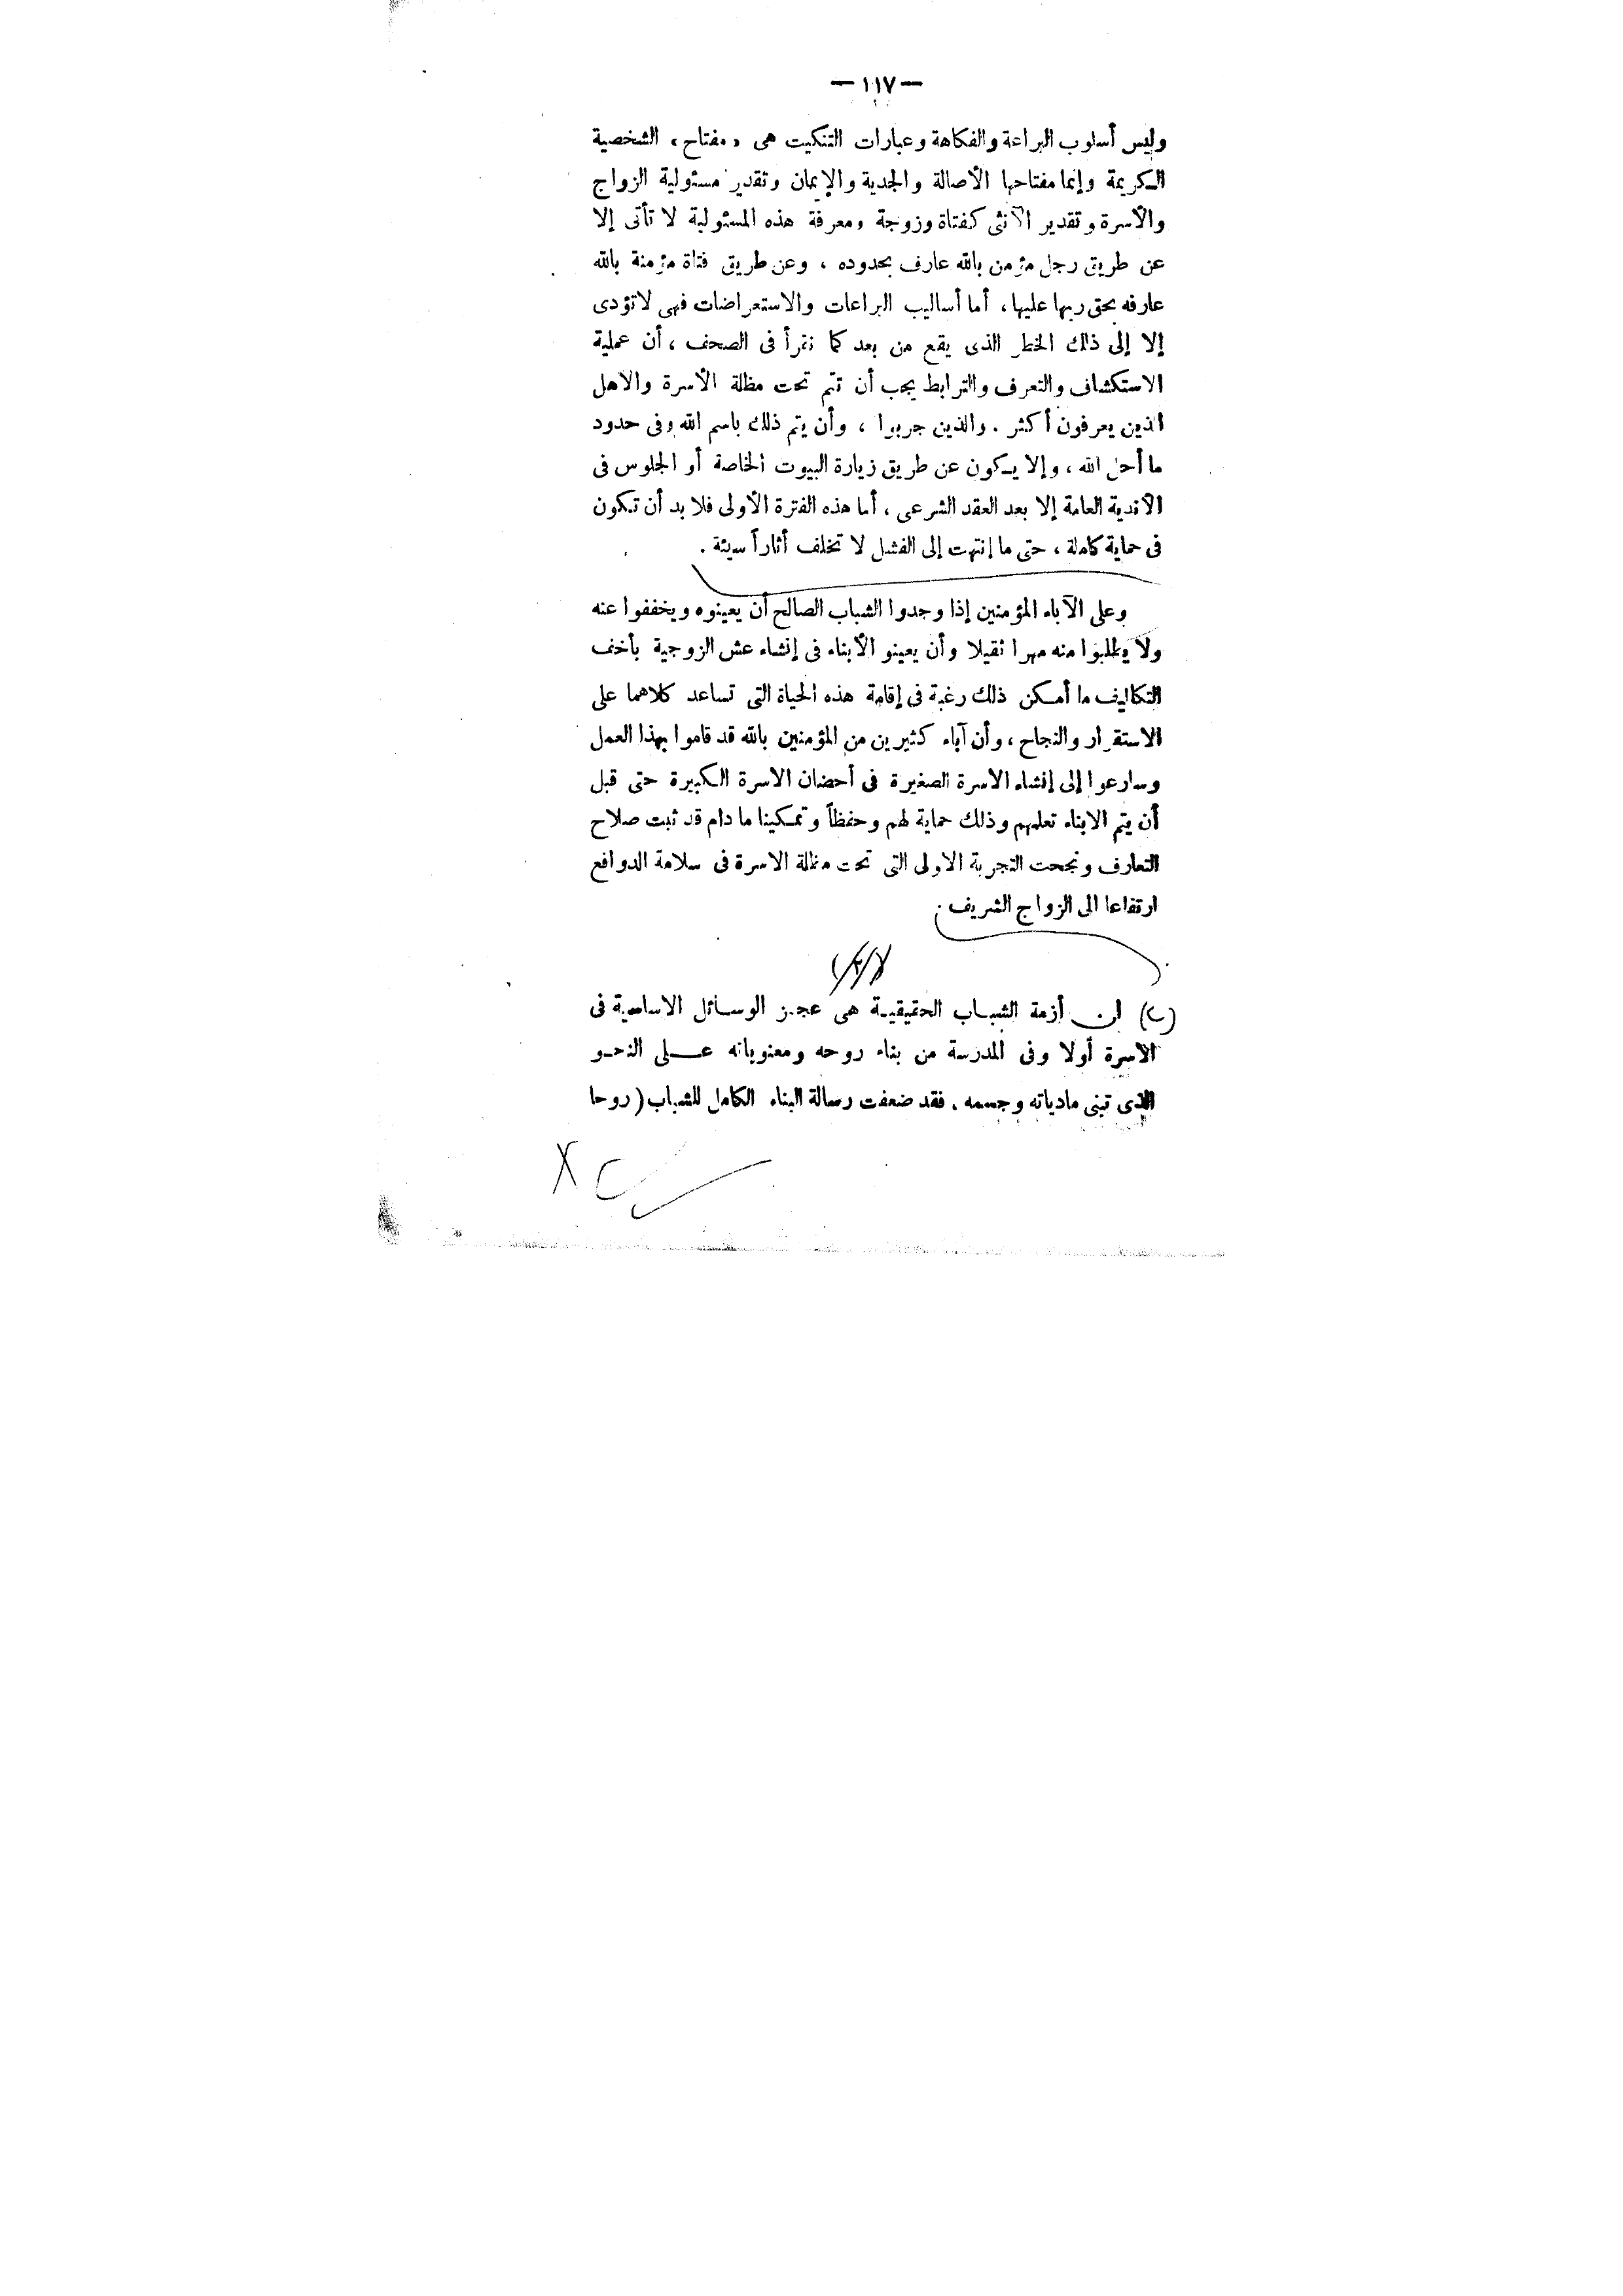 — ١١٧ —
وليس أسلوب البراعة والفكاهة وعبارات التنكيت هى «مفتاح» الشخصية
الكريمة وإنما مفتاحها الأصالة والجدية والإيمان وتقدير مسئولية الزواج
والأسرة وتقدير الأنثى كفتاة وزوجة ومعرفة هذه المسئولية لا تأتى إلا
عن طريق رجل مؤمن بالله عارف بحدوده ، وعن طريق فتاة مؤمنة بالله
عارفه بحق ربها عليها ، أما أساليب البراعات والاستعراضات فهى لا تؤدى
إلا إلى ذلك الخطر الذى يقع من بعد كما نقرأ فى الصحف ، أن عملية
الاستكشاف والتعرف والترابط يجب أن تتم تحت مظلة الأسرة والاهل
الذين يعرفون أكثر . والذين جربوا ، وأن يتم ذلك باسم الله وفى حدود
ما أحل الله ، وإلا يكون عن طريق زيارة البيوت الخاصة أو الجلوس فى
الأندية العامة إلا بعد العقد الشرعى ، أما هذه الفترة الأولى فلا بد أن تكون
فى حماية كاملة ، حتى ما إنتهت إلى الفشل لا تخلف أثاراً سيئة .
وعلى الآباء المؤمنين إذا وجدوا الشباب الصالح أن يعينوه ويخففوا عنه
ولا يطلبوا منه مهرا ثقيلا وأن يعينو الأبناء فى إنشاء عش الزوجية بأخف
التكاليف ما أمكن ذلك رغبة فى إقامة هذه الحياة التى تساعد كلاهما على
الاستقرار والنجاح ، وأن آباء كثيرين من المؤمنين بالله قد قاموا بهذا العمل
وسارعوا إلى إنشاء الاسرة الصغيرة فى أحضان الاسرة الكبيرة حتى قبل
أن يتم الابناء تعلمهم وذلك حماية لهم وحفظاً وتمكينا ما دام قد ثبت صلاح
التعارف ونجحت التجربة الاولى التى تحت مظلة الاسرة فى سلامة الدوافع
ارتفاعا الى الزواج الشريف .
ان أزمة الشباب الحقيقية هى عجز الوسائل الاساسية فى
الاسرة أولا وفى المدرسة من بناء روحه ومعنوياته على النحو
الذى تبنى مادياته وجسمه . فقد ضعفت رسالة البناء الكامل للشباب ( روحا